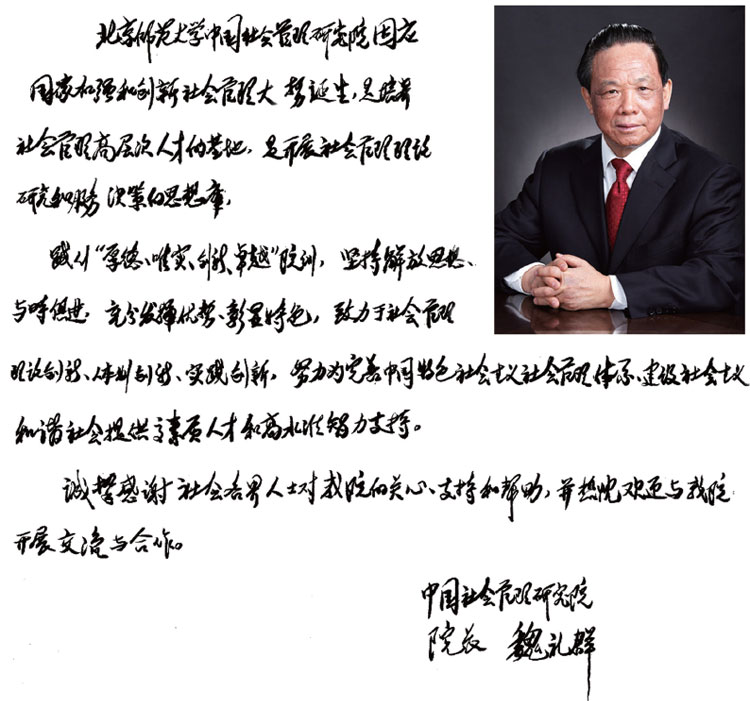 北京师范大学中国社会管理研究院因应
国家加强和创新社会管理大势诞生，是培养
社会管理高层次人才的基地，是开展社会管理理论
研究和服务决策的思想库。
践行“厚德、唯实、创新、卓越”院训，坚持解放思想、
与时俱进，充分发挥优势、彰显特色，致力于社会管理
理论创新、体制创新、实践创新，努力为完善中国特色社会主义社会管理体系、建设社会主义
和谐社会提供高素质人才和高水准智力支持。
诚挚感谢社会各界人士对我院的关心、支持和帮助，并热忱欢迎与我院
开展交流与合作。
中国社会管理研究院
院长 魏礼群